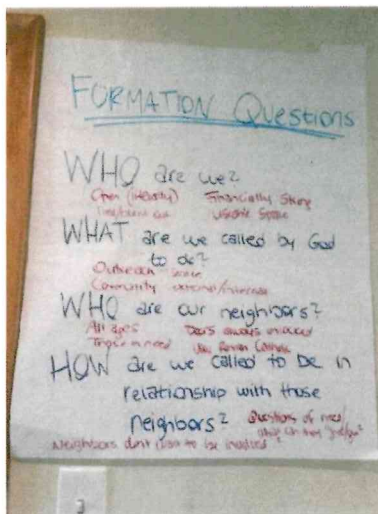 FORMATION Questions
WHO are we?
Open (identity) Financially Strong
Usable Space
WHAT are we called by God
to do?
Outreach
Community
WHO are our neighbors?
All ages Doors always unlocked
Those in need Roman Catholic
HOW are we called to be in
relationship with those
neighbors? Questions of need
Neighbors don't to be involved